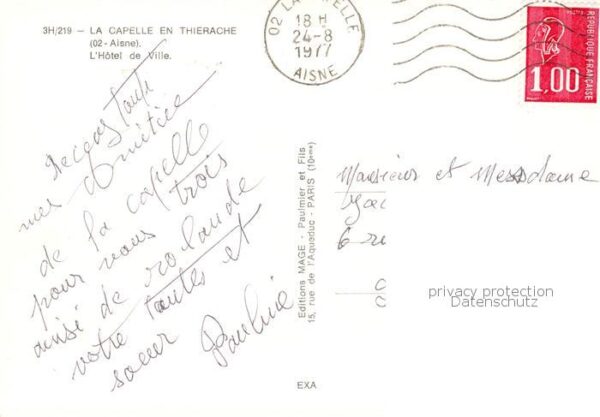 3H/219 – LA CAPELLE EN THIERACHE
(02 - Aisne).
L'Hôtel de Ville.
02 LA CAPELLE
18 H
24-8
1977
AISNE
REPUBLIQUE FRANÇAISE
1,00
recevez toute
mes amitiée
de la capelle
pour vous trois
ainsi de rolande
votre tantes et
soeur Pauline
Editions MAGE - Paulmier et Fils
15, rue de l'Aqueduc - PARIS (10ème)
Monsieur et Messdame
6 r
privacy protection
Datenschutz
EXA